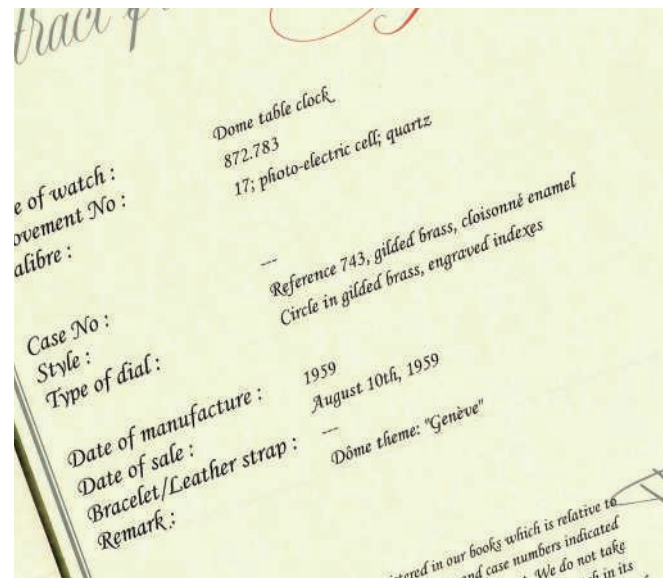 tract
Dome table clock
e of watch : 872.783
ovement No : 17; photo-electric cell; quartz
alibre :
Case No : ---
Style : Reference 743, gilded brass, cloisonné enamel
Type of dial : Circle in gilded brass, engraved indexes
Date of manufacture : 1959
Date of sale : August 10th, 1959
Bracelet/Leather strap : ---
Remark : Dôme theme: "Genève"
stered in our books which is relative to
and case numbers indicated
We do not take
in its